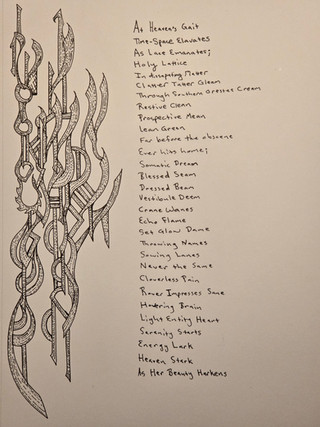 At Heavens Gait
Time-Space Elavates
As Lace Emanates;
Holy Lattice
In Matter
Clatter Tatter Gleam
Through Southern Crestas Cream
Restive Clean
Prospective Mean
Lean Green
Far before the obscene
Ever hits home;
Somatic Dream
Blessed Seam
Dressed Beam
Vestibule Deem
Crane Wanes
Echo Flame
Set Glow Dame
Throwing Names
Sowing Lanes
Never the Same
Cloverless Pain
Raver Impresses Sane
Brain
Light Entity Heart
Serenity Starts
Energy Lark
Heaven Stark
As Her Beauty Harkens